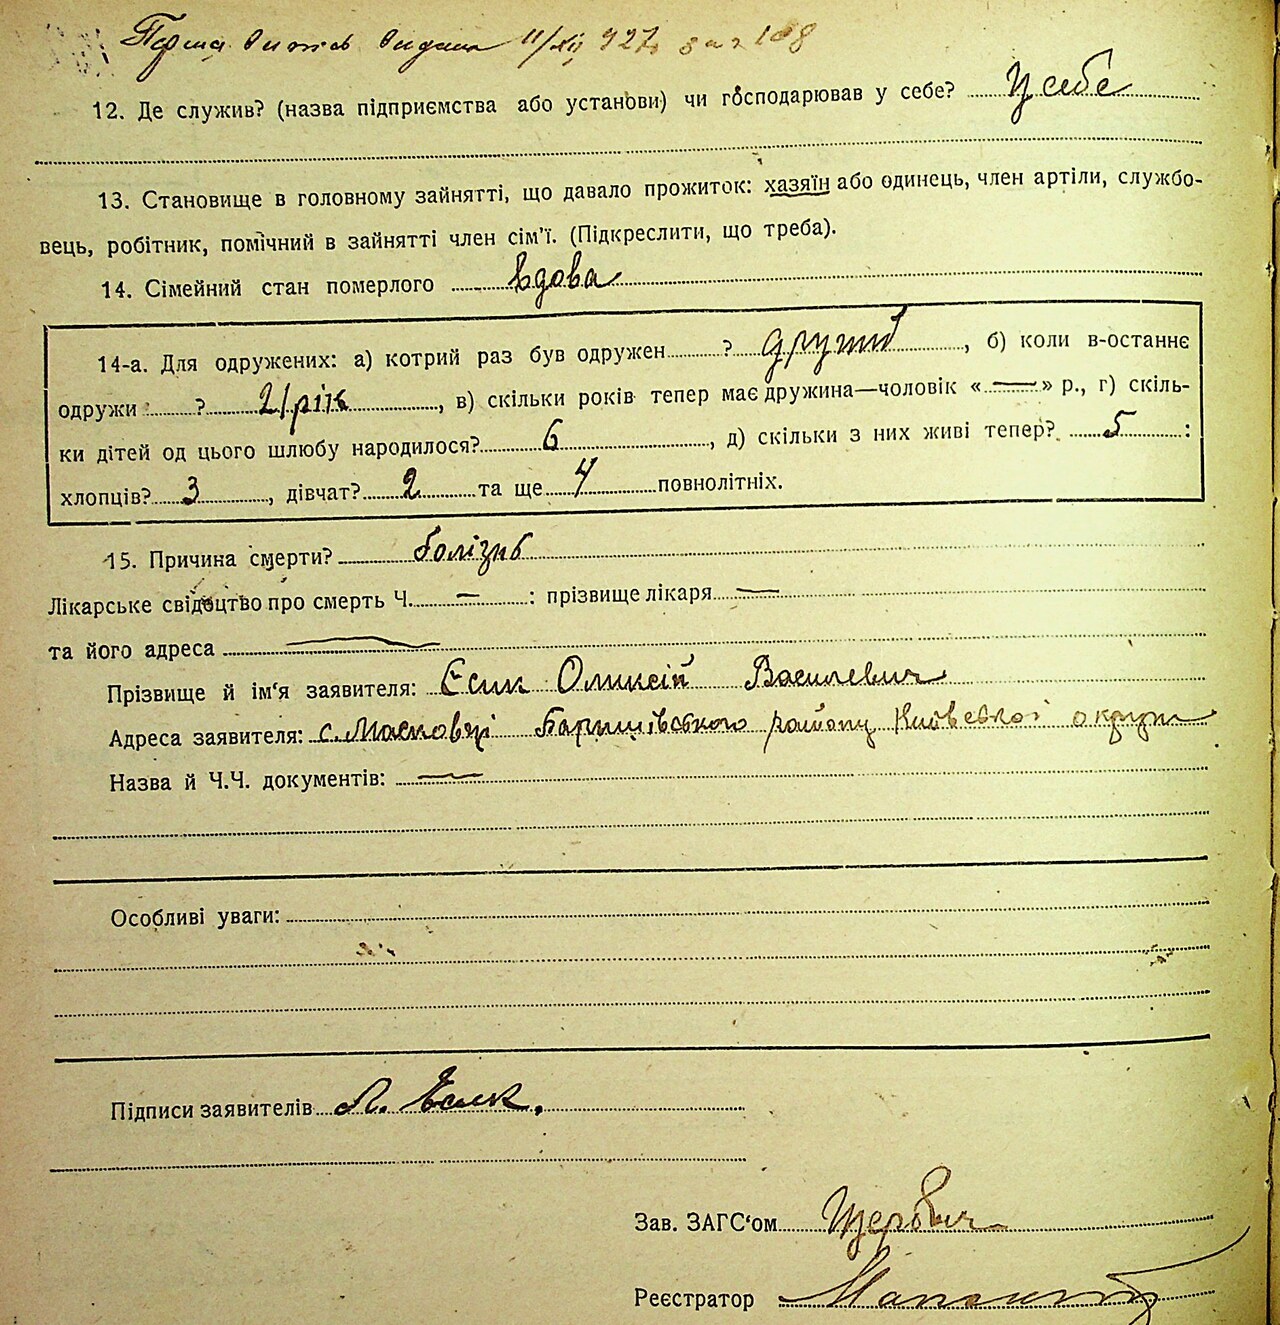 11/XII 927 р. за № 108
12. Де служив? (назва підприємства або установи) чи господарював у себе? У себе
13. Становище в головному зайнятті, що давало прожиток: хазяїн або одинець, член артіли, службо-
вець, робітник, помічний в зайнятті член сім'ї. (Підкреслити, що треба).
14. Сімейний стан померлого вдова
14-а. Для одружених: а) котрий раз був одружен ? другий, б) коли в-останнє
одружи ? 21 рік, в) скільки років тепер має дружина—чоловік «—» р., г) скіль-
ки дітей од цього шлюбу народилося? 6, д) скільки з них живі тепер? 5:
хлопців? 3, дівчат? 2 та ще 4 повнолітніх.
15. Причина смерти? болізнь
Лікарське свідоцтво про смерть Ч. — : прізвище лікаря —
та його адреса —
Прізвище й ім'я заявителя: Єсик Оликсій Василевич
Адреса заявителя: с. Масковці Баришівського району Київської округи
Назва й Ч.Ч. документів: —
Особливі уваги:
Підписи заявителів Єсик.
Зав. ЗАГС'ом
Реєстратор